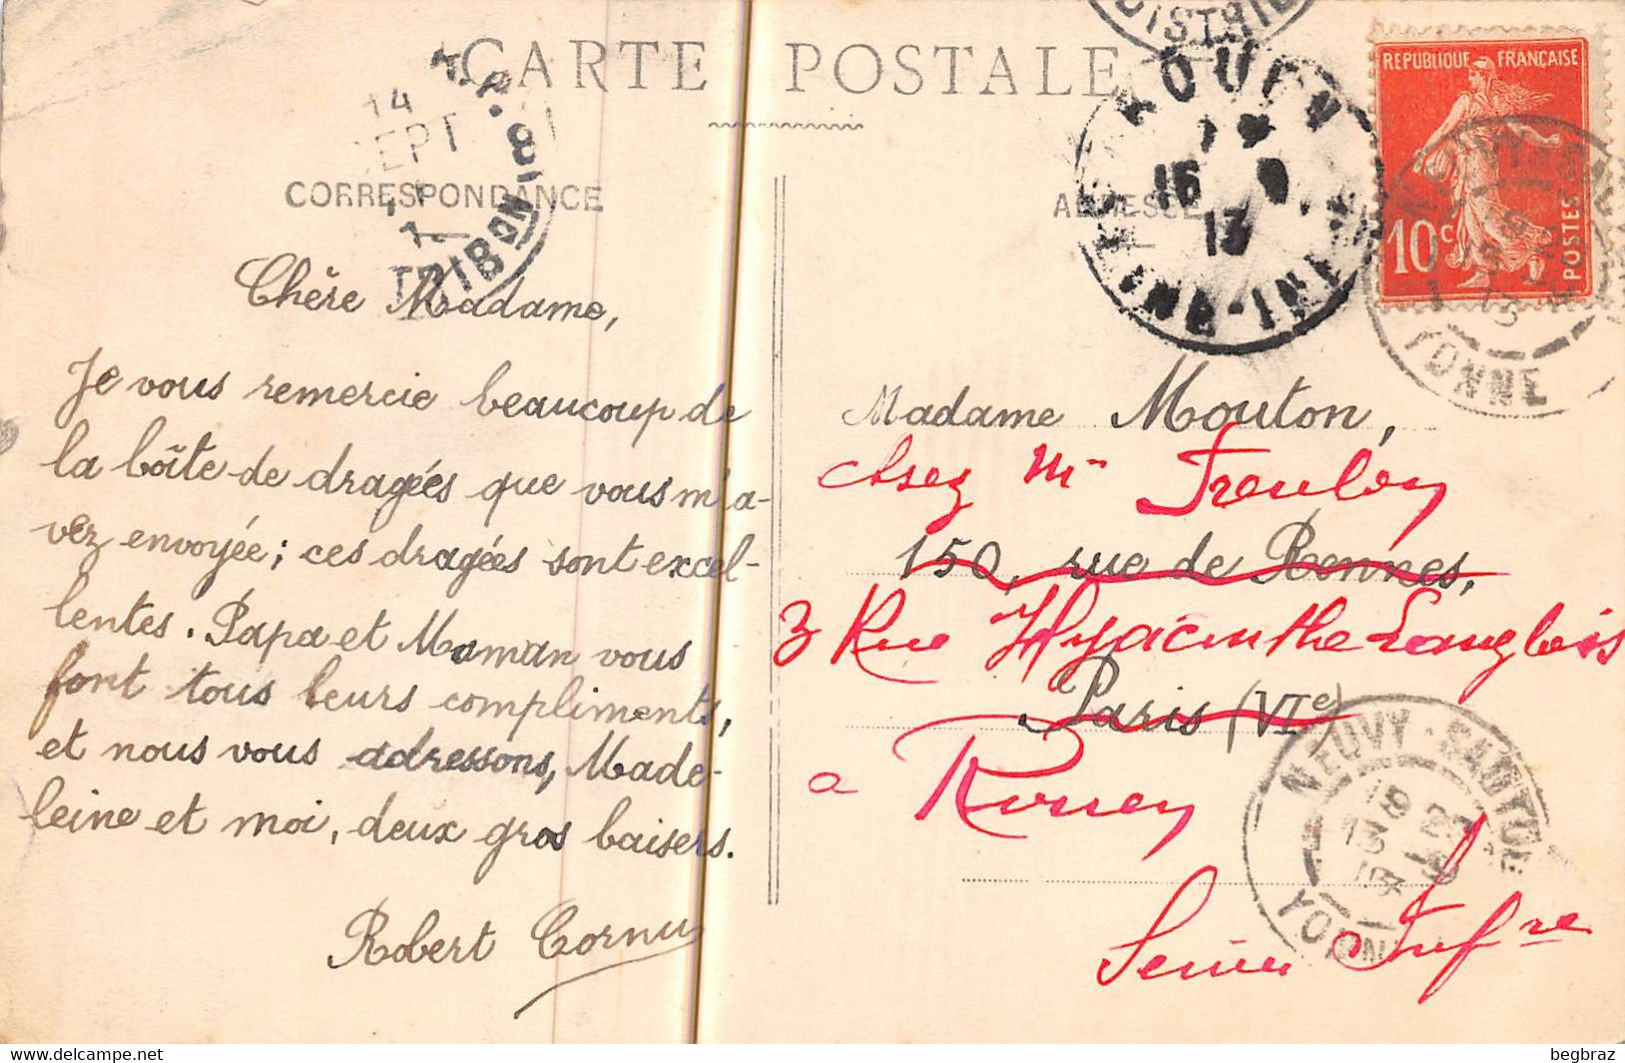 CARTE POSTALE
CORRESPONDANCE
Chère Madame,
Je vous remercie beaucoup de
la boîte de dragées que vous m'a-
vez envoyée ; ces dragées sont excel-
lentes. Papa et Maman vous
font tous leurs compliments,
et nous vous adressons, Made-
leine et moi, deux gros baisers.
Robert Cornu
14
SEPT
DISTRIB
DISTRIBUTION
ADRESSE
ROUEN
15 9
13
REPUBLIQUE FRANÇAISE
10c
POSTES
YONNE
Madame Mouton,
chez Mr
150, rue de Rennes,
3 Rue Hyacinthe Langlois
Paris (VIe)
a Rouen
Seine Infre
NEUVY-SAUTOUR
13 9
13
YONNE
delcampe.net
begbraz